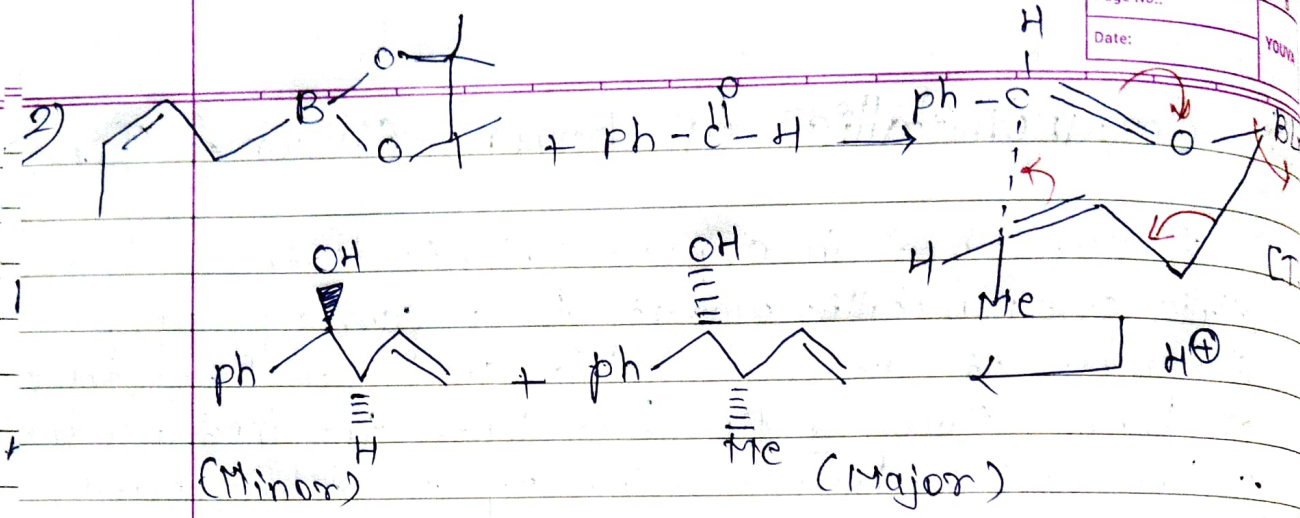 H
Date:
YOUVA
2) B O O + Ph - C - H → Ph - C O - B
O
H Me
OH OH H⊕
Ph + Ph
H Me
(Minor) (Major)